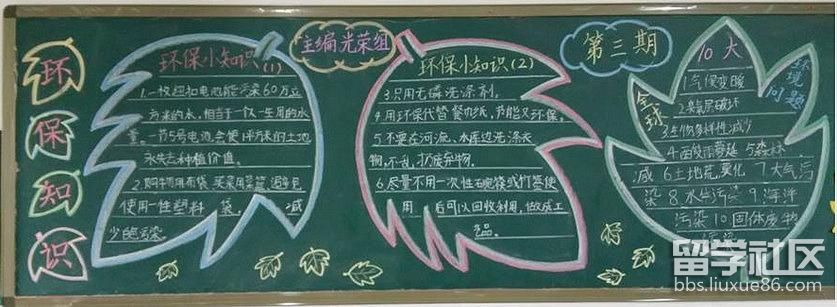 环
保
知
识
主编光荣组
第三期
环保小知识(1)
1.一枚纽扣电池能污染60万立
方米的水,相当于一个人一生用的水
量。一节5号电池会使1平方米的土地
永失去种植价值。
2.购物用布袋 买菜用菜篮,避免
使用一性塑料袋。减
少白色污染。
环保小知识(2)
3.只用无磷洗涤剂。
4.用环保代替餐巾纸,节能又环保。
5.不要在河流、水库边洗涤衣
物,不乱扔废弃物。
6.尽量不用一次性石碗筷或打签使
用 后可以回收利用,做成工
艺品。
10大
全球
环境
问题
1气候变暖
2臭氧层破坏
3生物多样性减少
4酸雨蔓延 5森林
减 6土地荒莫化 7大气污
染 8水体污染 9海洋
污染 10固体废物
污染
留学社区
bbs.liuxue86.com